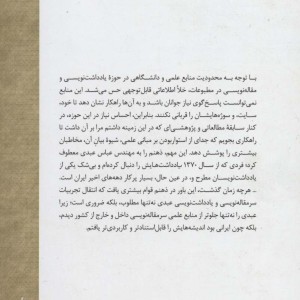 با توجه به محدودیت منابع علمی و دانشگاهی در حوزهٔ یادداشت‌نویسی و
مقاله‌نویسی در مطبوعات، خلأ اطلاعاتی قابل‌توجهی حس می‌شد. این منابع
نمی‌توانست پاسخ‌گوی نیاز جوانان باشد و به آن‌ها راهکار نشان دهد تا خود،
سایت، و سوژه‌هایشان را قربانی نکنند. بنابراین، احساس نیاز در این حوزه، در
کنار سابقهٔ مطالعاتی و پژوهشی‌ای که در این زمینه داشتم مرا بر آن داشت تا
راهکاری بجویم که جدای از استواربودن بر مبانی علمی، شیوهٔ بیانِ آن، مخاطبان
بیشتری را پوشش دهد. این مهم، ذهنم را به مهندس عباس عبدی معطوف
کرد؛ فردی که از سال ۱۳۷۰ یادداشت‌هایش را دنبال کرده‌ام و بی‌شک یکی از
یادداشت‌نویسان مطرح و، در عین حال، بسیار پرکار دهه‌های اخیر ایران است.
ـ هرچه زمان گذشت، این باور در ذهنم قوام بیشتری یافت که انتقال تجربیات
سرمقاله‌نویسی و یادداشت‌نویسی عبدی نه‌تنها مطلوب، بلکه ضروری است؛ زیرا
عبدی را نه‌تنها جلوتر از منابع علمی سرمقاله‌نویسی داخل و خارج از کشور دیدم،
بلکه چون ایرانی بود اندیشه‌هایش را قابل‌استنادتر و کاربردی‌تر یافتم.